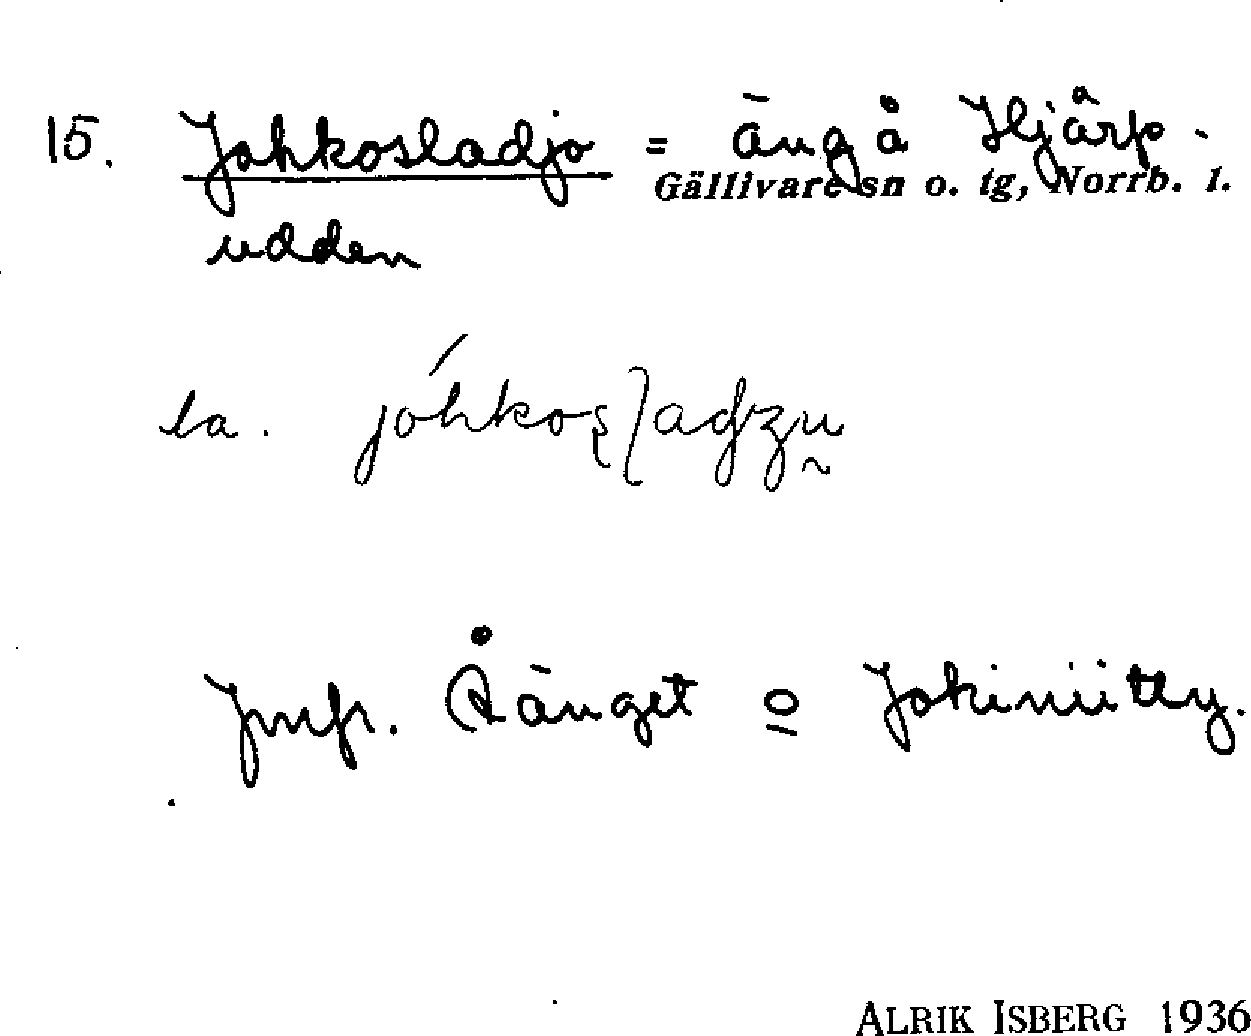 15. Johkosladjo = äng å Hjårp-
Gällivare sn o. tg, Norrb. l.
udden
la. jóhkosladʒu
Jmfr. Åänget o Jokiniitty.
ALRIK ISBERG 1936